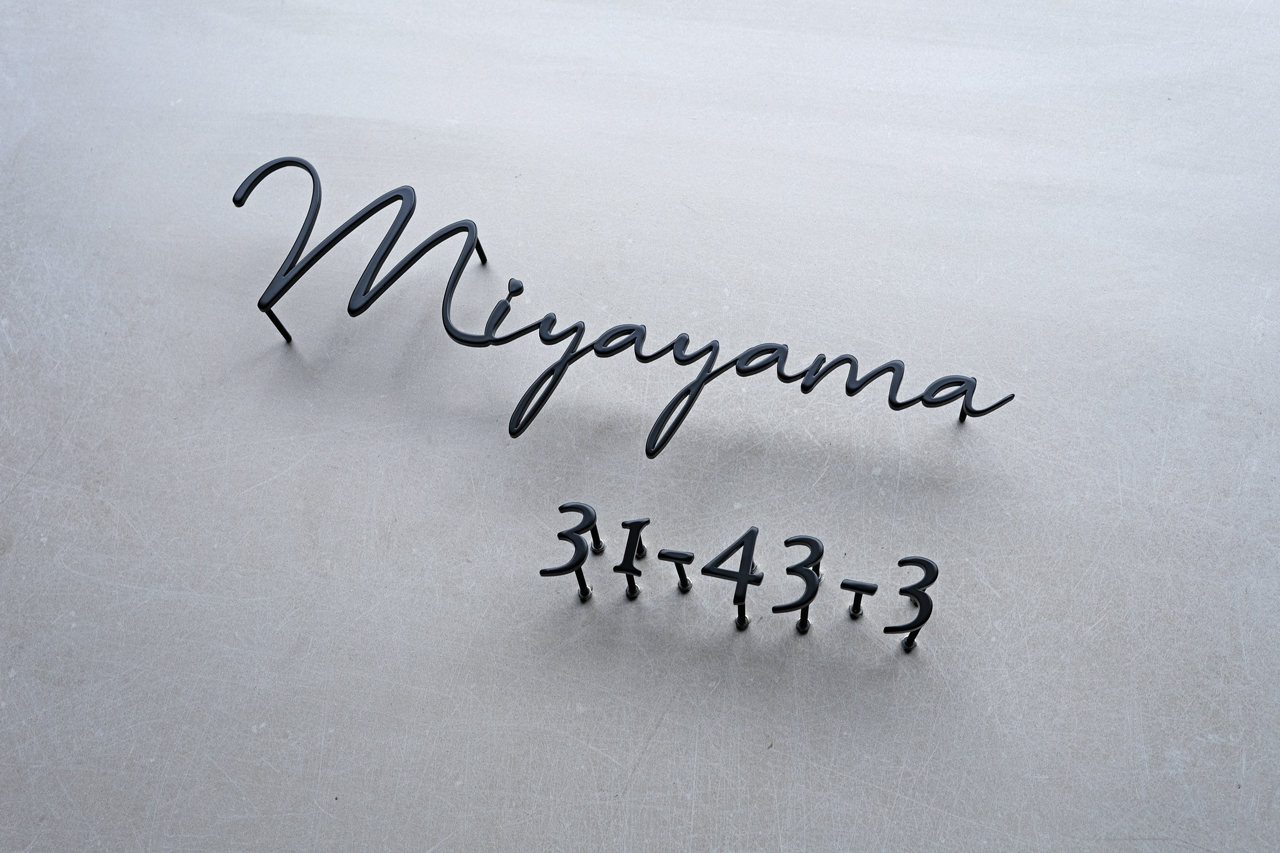 Miyayama
31-43-3